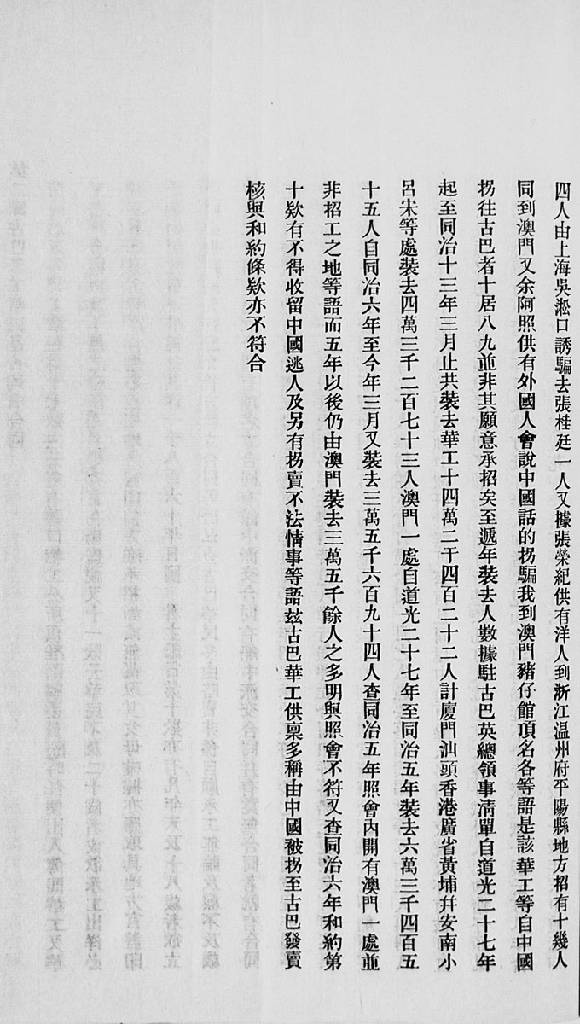 四人由上海吳淞口誘騙去張桂廷一人又據張榮紀供有洋人到浙江溫州府平陽縣地方招有十幾人
同到澳門又余阿照供有外國人會說中國話的拐騙我到澳門豬仔館頂名各等語是該華工等自中國
拐往古巴者十居八九並非其願意承招矣至遞年裝去人數據駐古巴英總領事淸單自道光二十七年
起至同治十三年三月止共裝去華工十四萬二千四百二十二人計廈門汕頭香港廣省黃埔幷安南小
呂宋等處裝去四萬三千二百七十三人澳門一處自道光二十七年至同治五年裝去六萬三千四百五
十五人自同治六年至今年三月又裝去三萬五千六百九十四人查同治五年照會內開有澳門一處並
非招工之地等語而五年以後仍由澳門裝去三萬五千餘人之多明與照會不符又查同治六年和約第
十欵有不得收留中國逃人及另有拐賣不法情事等語玆古巴華工供稟多稱由中國被拐至古巴發賣
核與和約條欵亦不符合